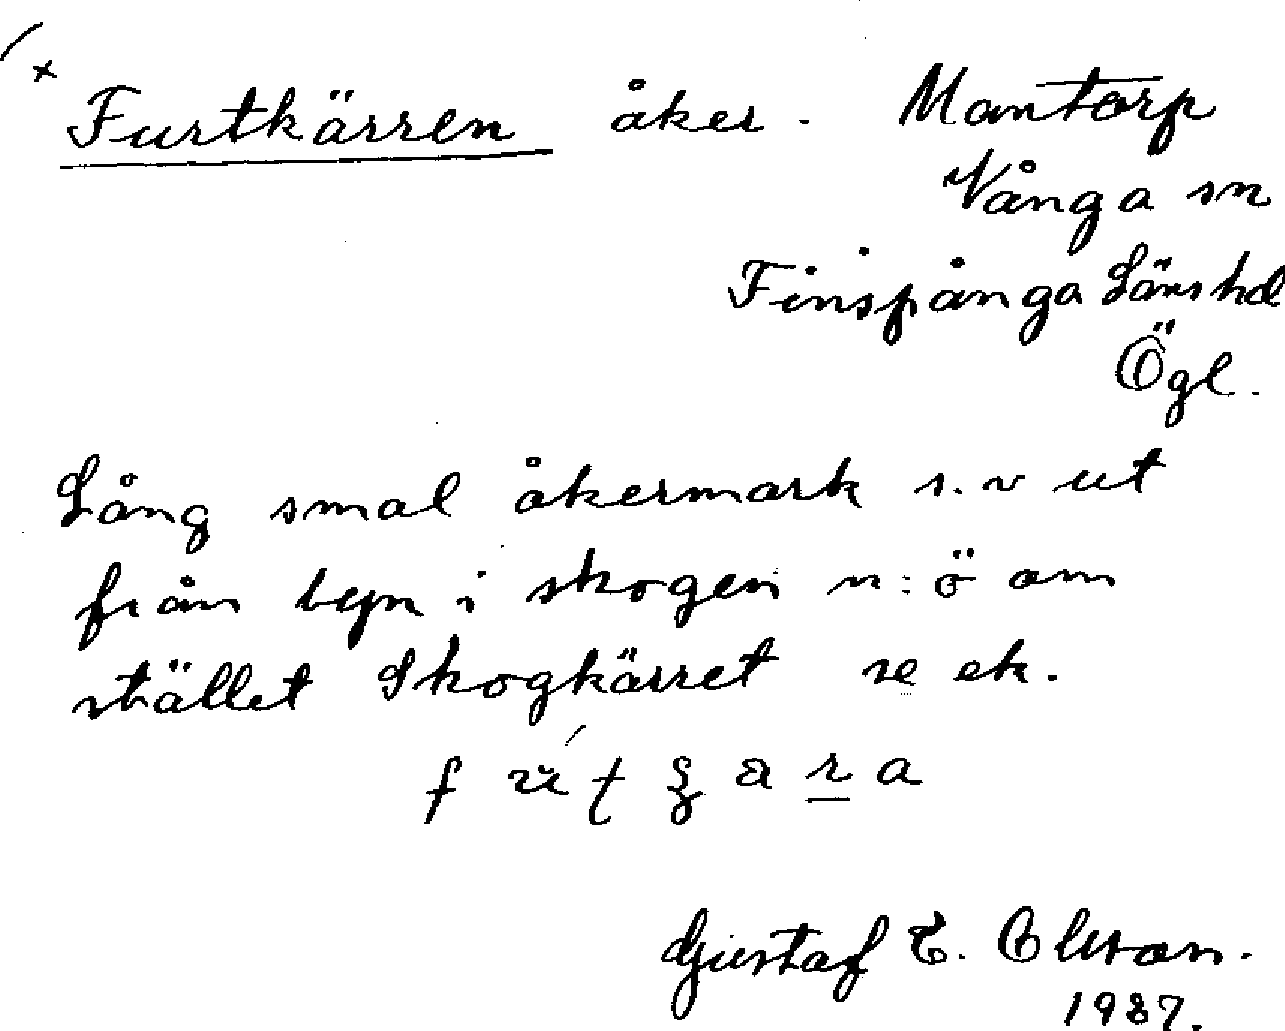 Furtkärren åker. Mantorp
Vånga sn
Finspånga Länshd
Ögl.
Lång smal åkermark s.v ut
från byn i skogen n:ö om
stället Skogkärret se ek.
Gustaf E. Olsson.
1937.